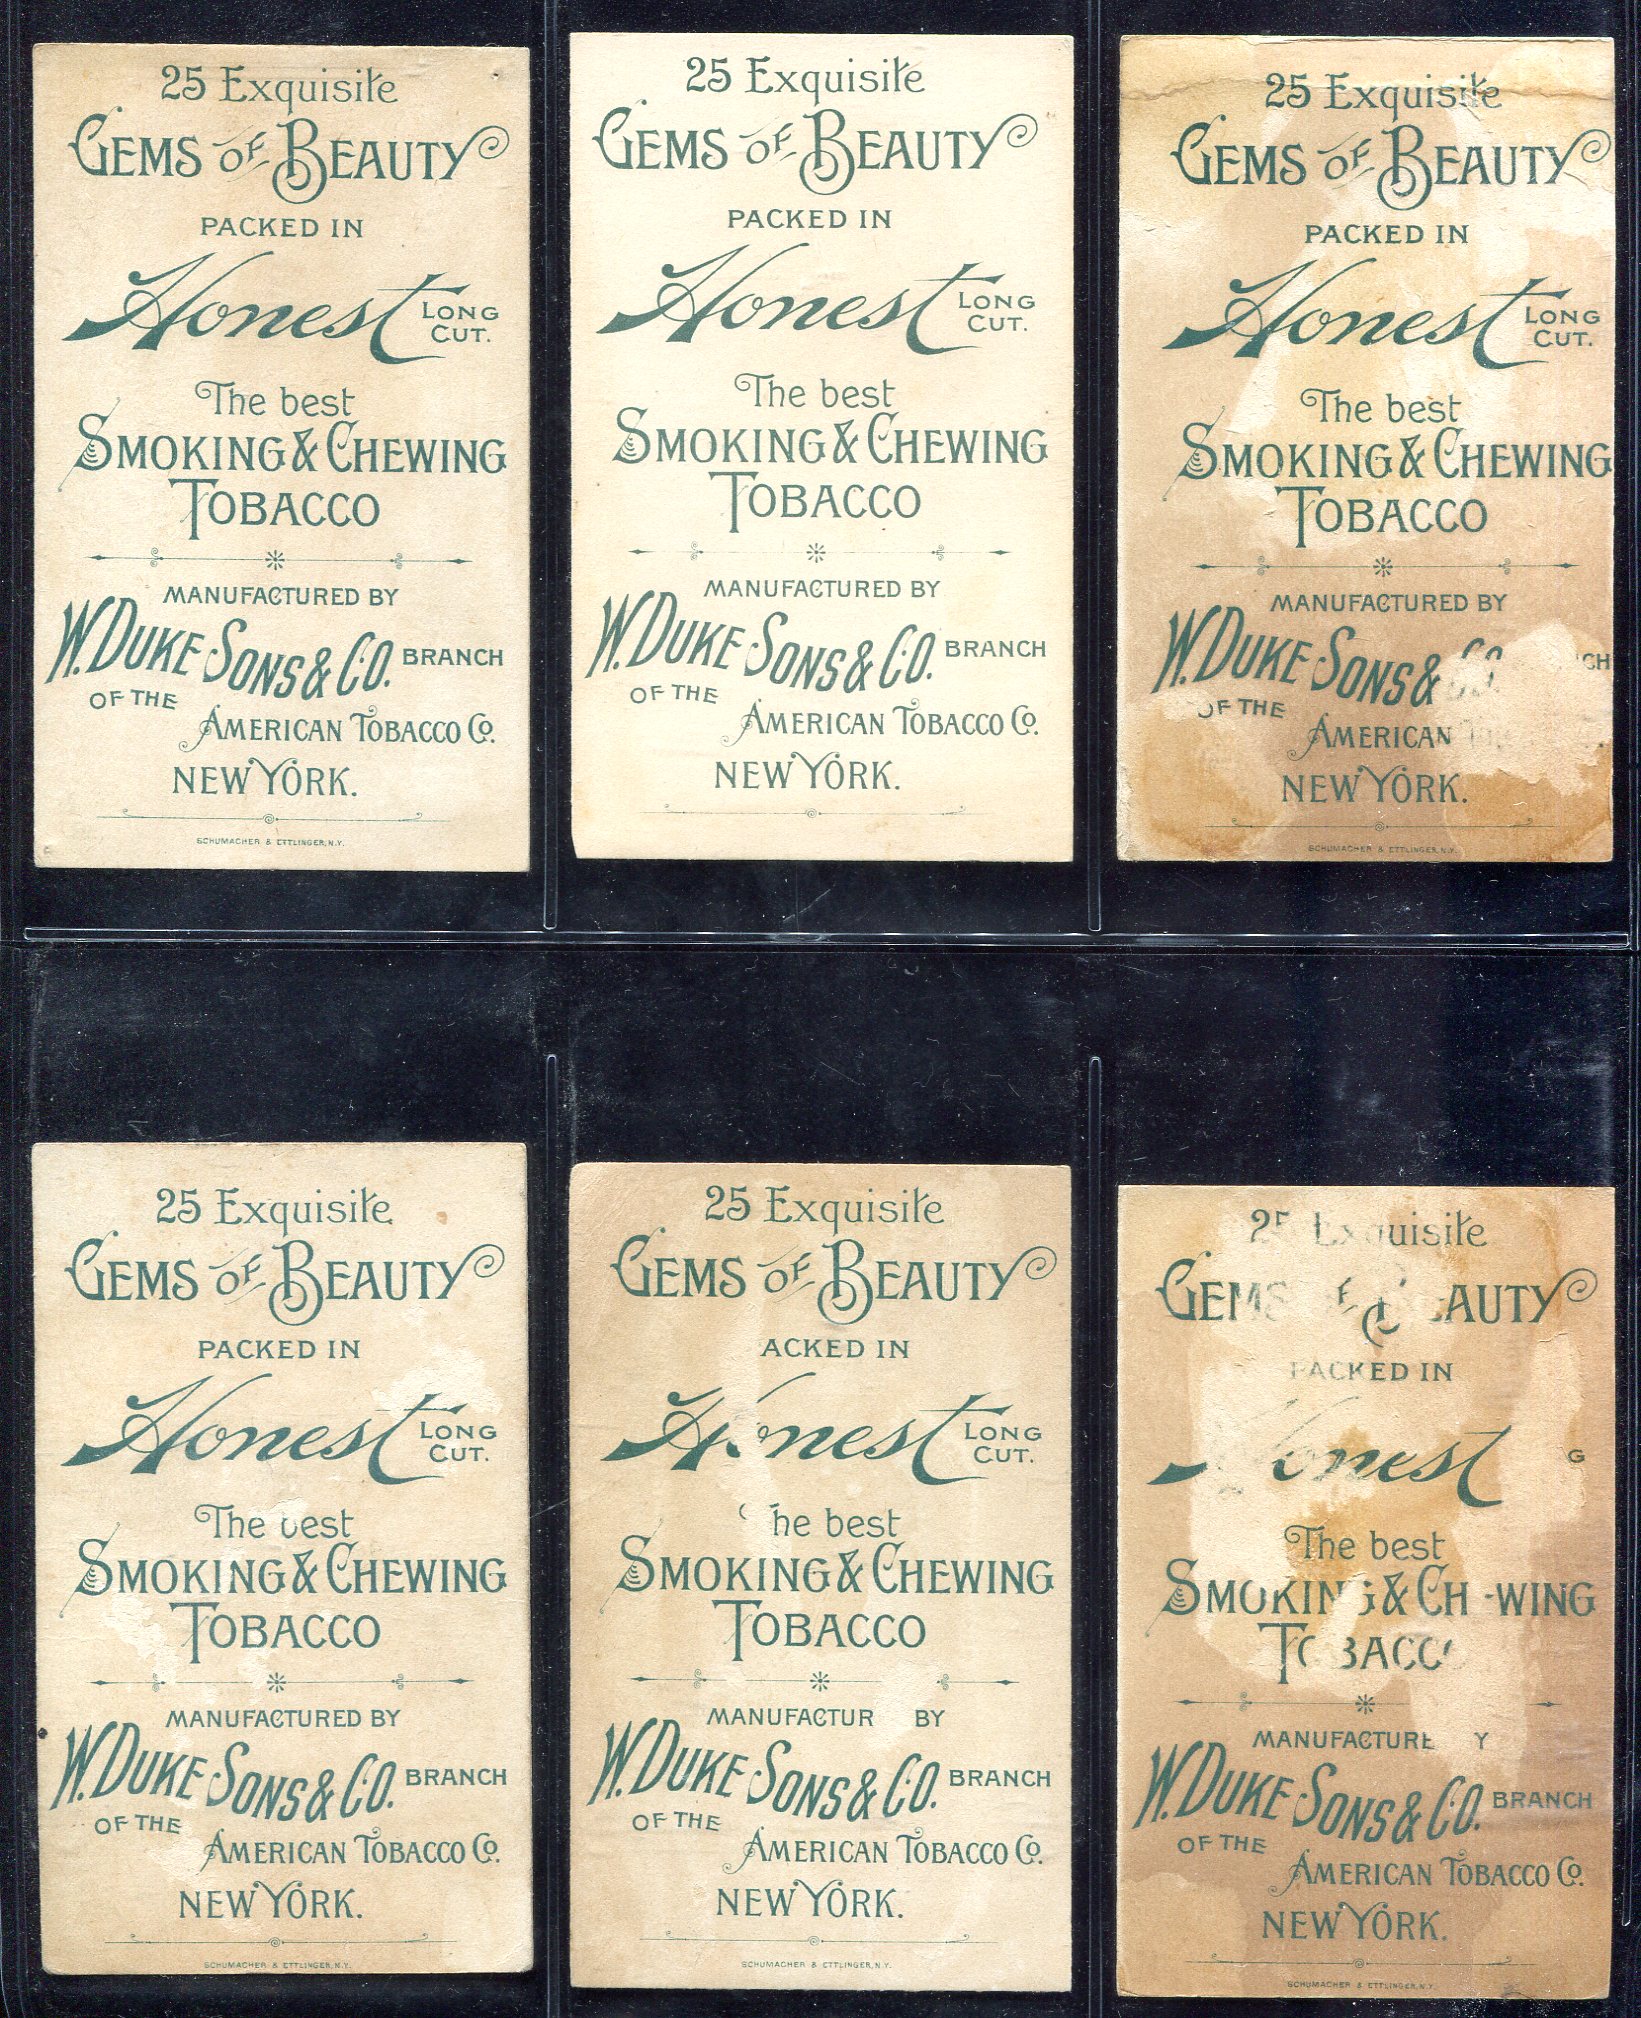 25 Exquisite
GEMS OF BEAUTY
PACKED IN
Honest LONG CUT.
The best
SMOKING & CHEWING
TOBACCO
MANUFACTURED BY
W. DUKE SONS & CO. BRANCH
OF THE
AMERICAN TOBACCO CO.
NEW YORK.
SCHUMACHER & ETTLINGER, N.Y.
25 Exquisite
GEMS OF BEAUTY
PACKED IN
Honest LONG CUT.
The best
SMOKING & CHEWING
TOBACCO
MANUFACTURED BY
W. DUKE SONS & CO. BRANCH
OF THE
AMERICAN TOBACCO CO.
NEW YORK.
25 Exquisite
GEMS OF BEAUTY
PACKED IN
Honest LONG CUT.
The best
SMOKING & CHEWING
TOBACCO
MANUFACTURED BY
W. DUKE SONS & CO. CH
OF THE
AMERICAN
NEW YORK.
SCHUMACHER & ETTLINGER, N.Y.
25 Exquisite
GEMS OF BEAUTY
PACKED IN
Honest LONG CUT.
The best
SMOKING & CHEWING
TOBACCO
MANUFACTURED BY
W. DUKE SONS & CO. BRANCH
OF THE
AMERICAN TOBACCO CO.
NEW YORK.
SCHUMACHER & ETTLINGER, N.Y.
25 Exquisite
GEMS OF BEAUTY
ACKED IN
Honest LONG CUT.
he best
SMOKING & CHEWING
TOBACCO
MANUFACTUR BY
W. DUKE SONS & CO. BRANCH
OF THE
AMERICAN TOBACCO CO.
NEW YORK.
SCHUMACHER & ETTLINGER, N.Y.
25 Exquisite
GEMS AUTY
PACKED IN
onest G
The best
SMOKING & CH WING
TOBACCO
MANUFACTURE Y
W. DUKE SONS & CO. BRANCH
OF THE
AMERICAN TOBACCO CO.
NEW YORK.
SCHUMACHER & ETTLINGER, N.Y.